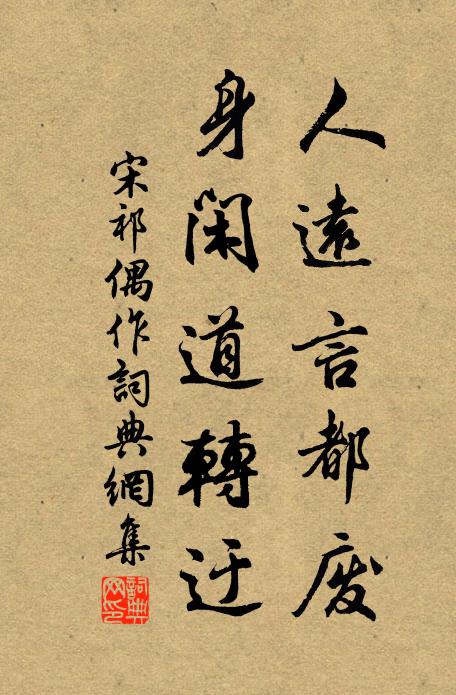 人遠言都廢
身閑道轉迂
宋祁偶作詞典網集
詞典網印